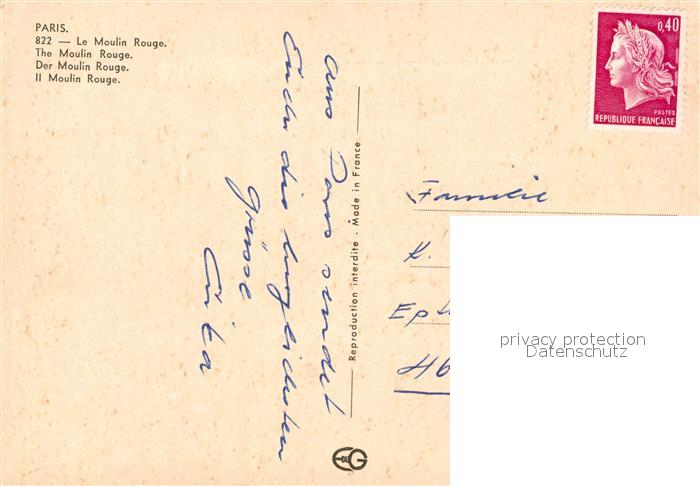 PARIS.
822 — Le Moulin Rouge.
The Moulin Rouge.
Der Moulin Rouge.
Il Moulin Rouge.
0,40
POSTES
REPUBLIQUE FRANÇAISE
Aus Paris sendet
Euch die herzlichsten
Grüsse
Reproduction interdite - Made in France
Familie
K.
privacy protection
Datenschutz
EG